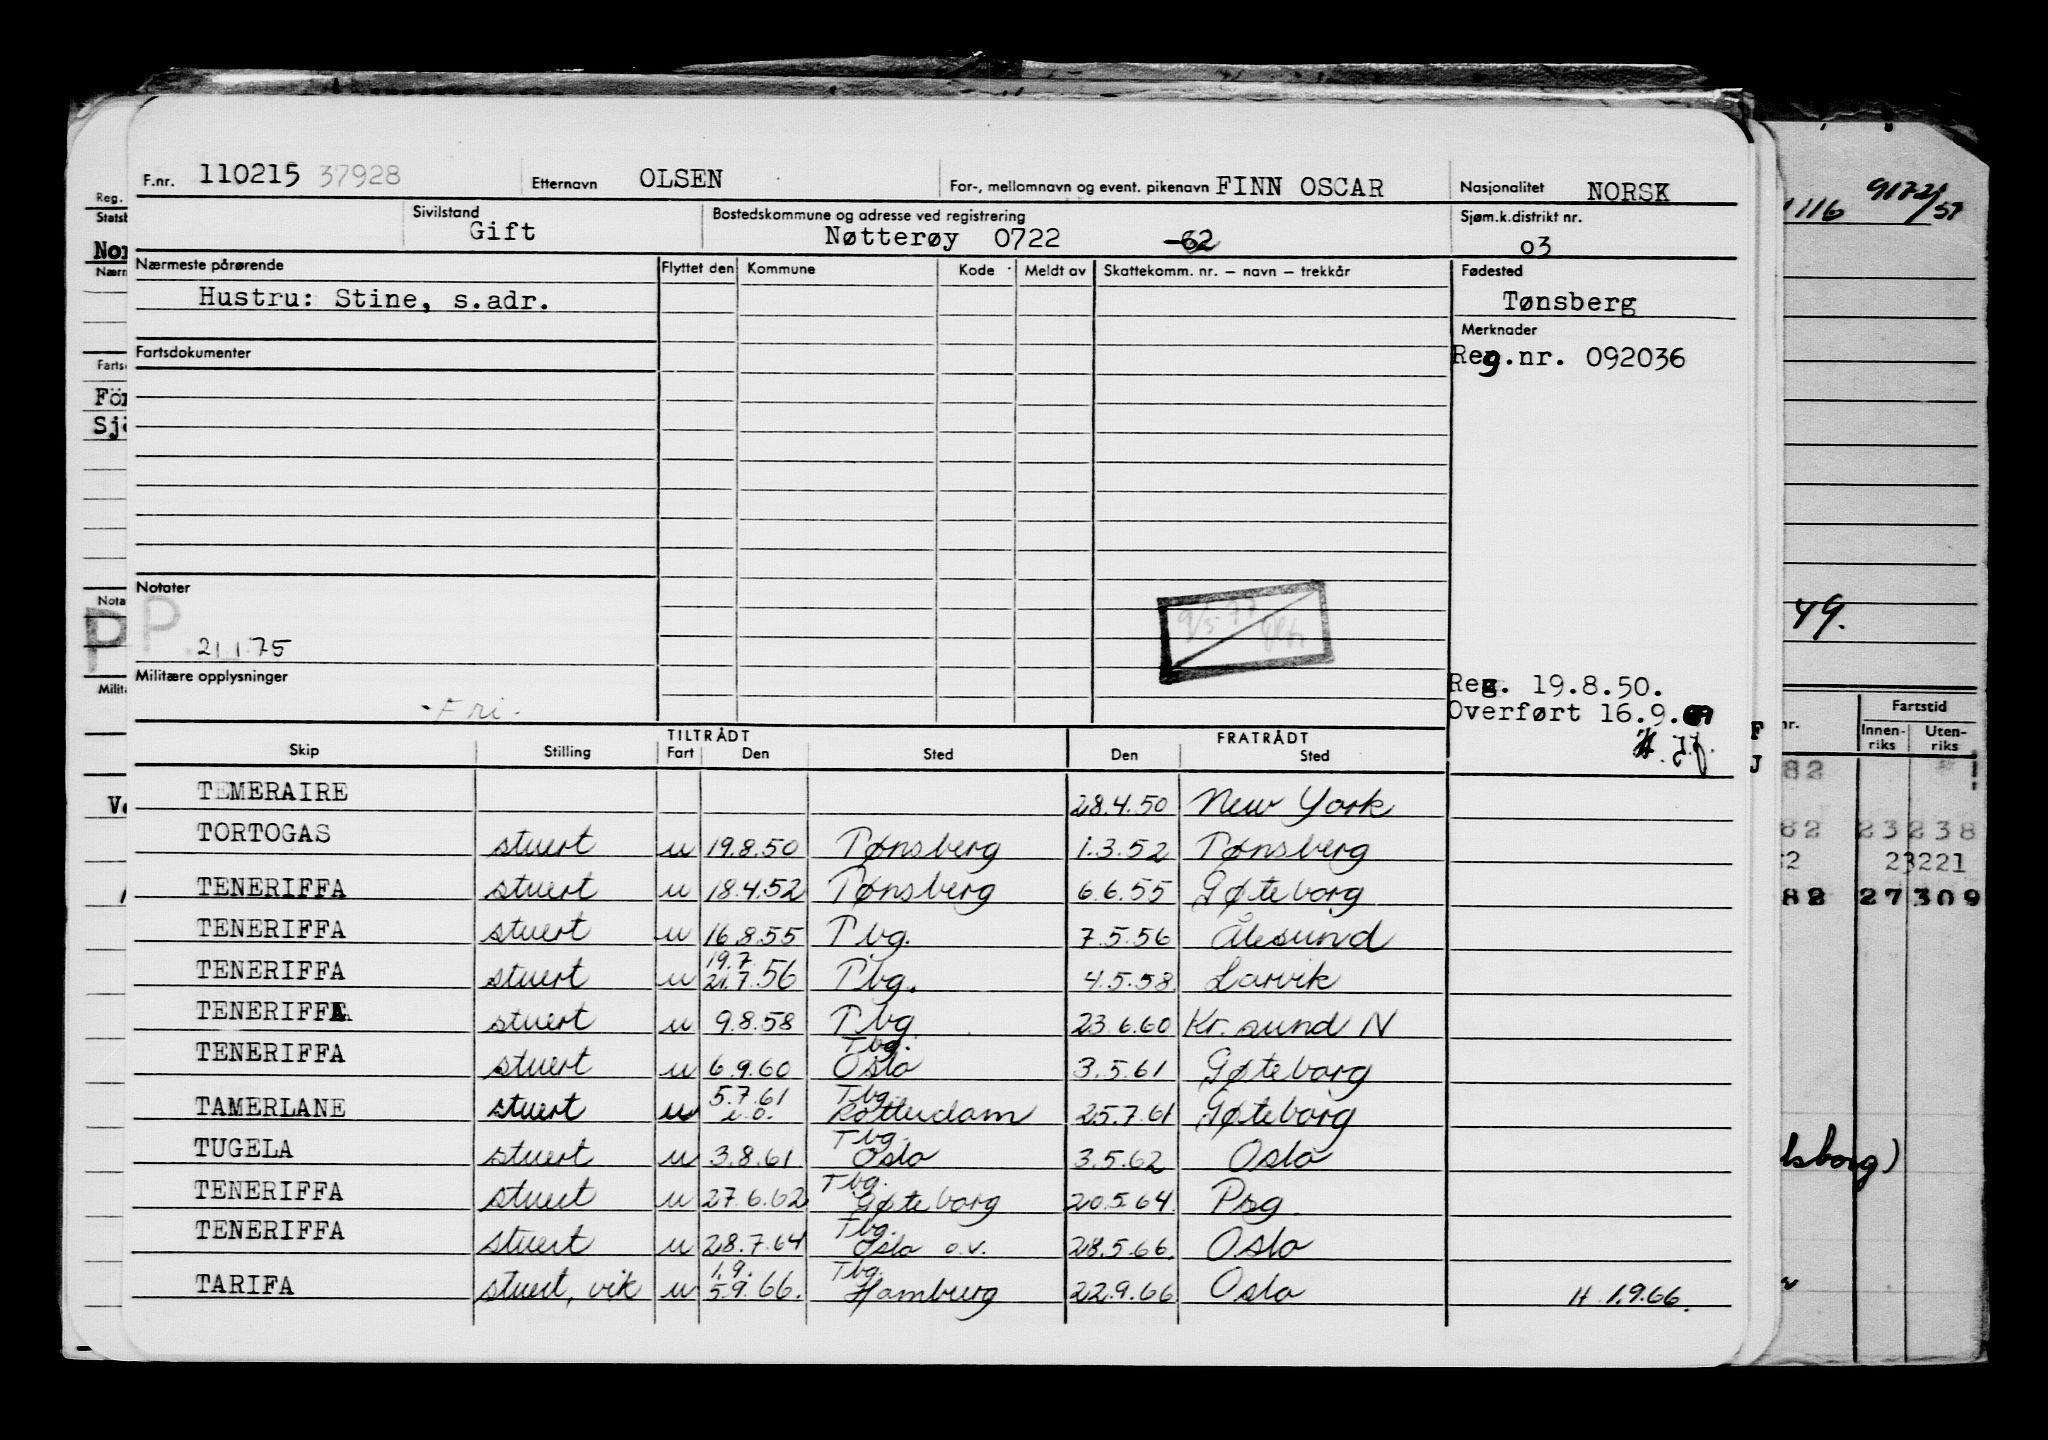 F.nr. 110215 37928 Etternavn OLSEN For-, mellomnavn og event. pikenavn FINN OSCAR Nasjonalitet NORSK
Sivilstand Gift Bostedskommune og adresse ved registrering Nøtterøy 0722 -62 Sjøm.k.distrikt nr. 03
Nærmeste pårørende Flyttet den Kommune Kode Meldt av Skattekomm. nr. – navn – trekkår Fødested
Hustru: Stine, s.adr. Tønsberg
Merknader
Fartsdokumenter Reg.nr. 092036
Notater
P. 21.1.75
Militære opplysninger
- Fri -
Reg. 19.8.50.
Overført 16.9.69
TILTRÅDT FRATRÅDT
Skip Stilling Fart Den Sted Den Sted
TEMERAIRE 28.4.50 New York
TORTOGAS stuert u 19.8.50 Tønsberg 1.3.52 Tønsberg
TENERIFFA stuert u 18.4.52 Tønsberg 6.6.55 Gøteborg
TENERIFFA stuert u 16.8.55 Tbg. 7.5.56 Ålesund
TENERIFFA stuert u 19.7 21.7.56 Tbg. 4.5.58 Larvik
TENERIFFA stuert u 9.8.58 Tbg 23.6.60 Kr.sund N
TENERIFFA stuert u 6.9.60 Tbg. Oslo 3.5.61 Gøteborg
TAMERLANE stuert u 5.7.61 u.o. Tbg. Rotterdam 25.7.61 Gøteborg
TUGELA stuert u 3.8.61 Tbg. Oslo 3.5.62 Oslo
TENERIFFA stuert u 27.6.62 Tbg. Gøteborg 20.5.64 Psg.
TENERIFFA stuert u 28.7.64 Tbg. Oslo o.v. 28.5.66. Oslo
TARIFA stuert, vik u 1.9. 5.9.66. Tbg. Hamburg 22.9.66 Oslo H 1.9.66.
Reg.
Statsb
Nor
Nærn
Farts
För
Sjö
Nota
P
Milit
116 9172/57
49.
Fartstid
nr. Innen-riks Uten-riks
F
J
82
82 23 238
2 23221
82 27 309
lsborg)